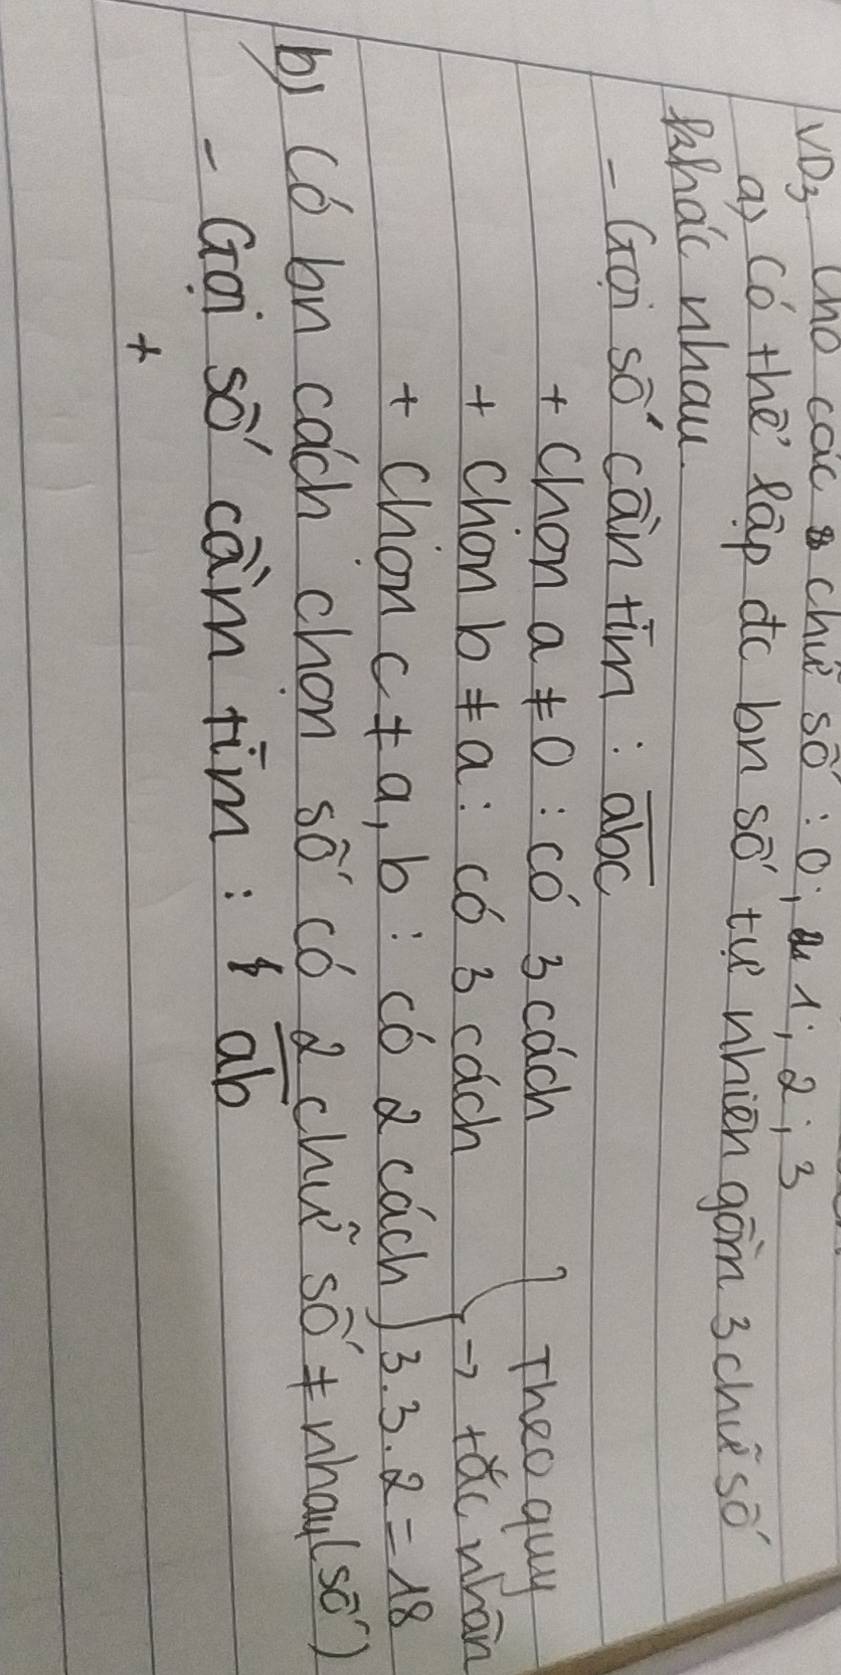 VD3 Cho các chữ số : 0 ; 1 ; 2 ; 3
a) Có thể lập đc bn số tự nhiên gồm 3 chữ số
khác nhau.
- Gọi số cần tìm : abc
+ Chọn a ≠ 0 : có 3 cách } Theo quy
+ Chọn b ≠ a : có 3 cách → tắc nhân
+ Chọn c ≠ a, b : có 2 cách 3.3.2 = 18
b) Có bn cách chọn số có 2 chữ số ≠ nhau (số)
- Gọi số cầm tìm : ab
+